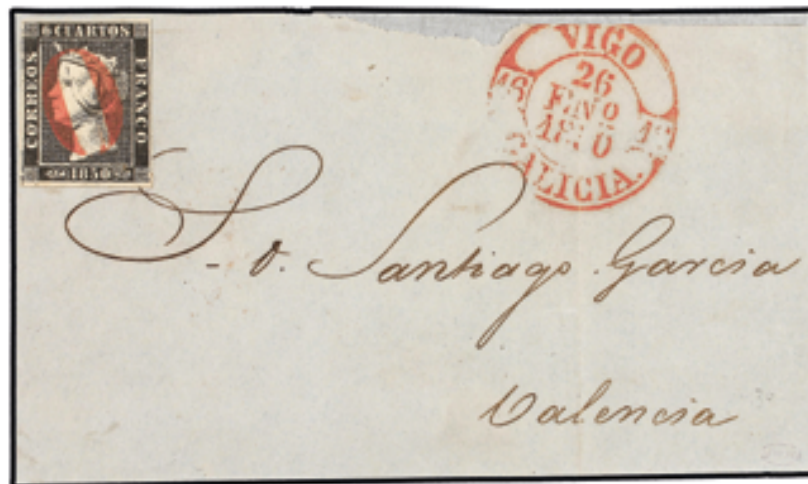 6 CUARTOS
CORREOS
FRANCO
1850
VIGO
26
ENº
1850
GALICIA.
S. D. Santiago Garcia
Valencia